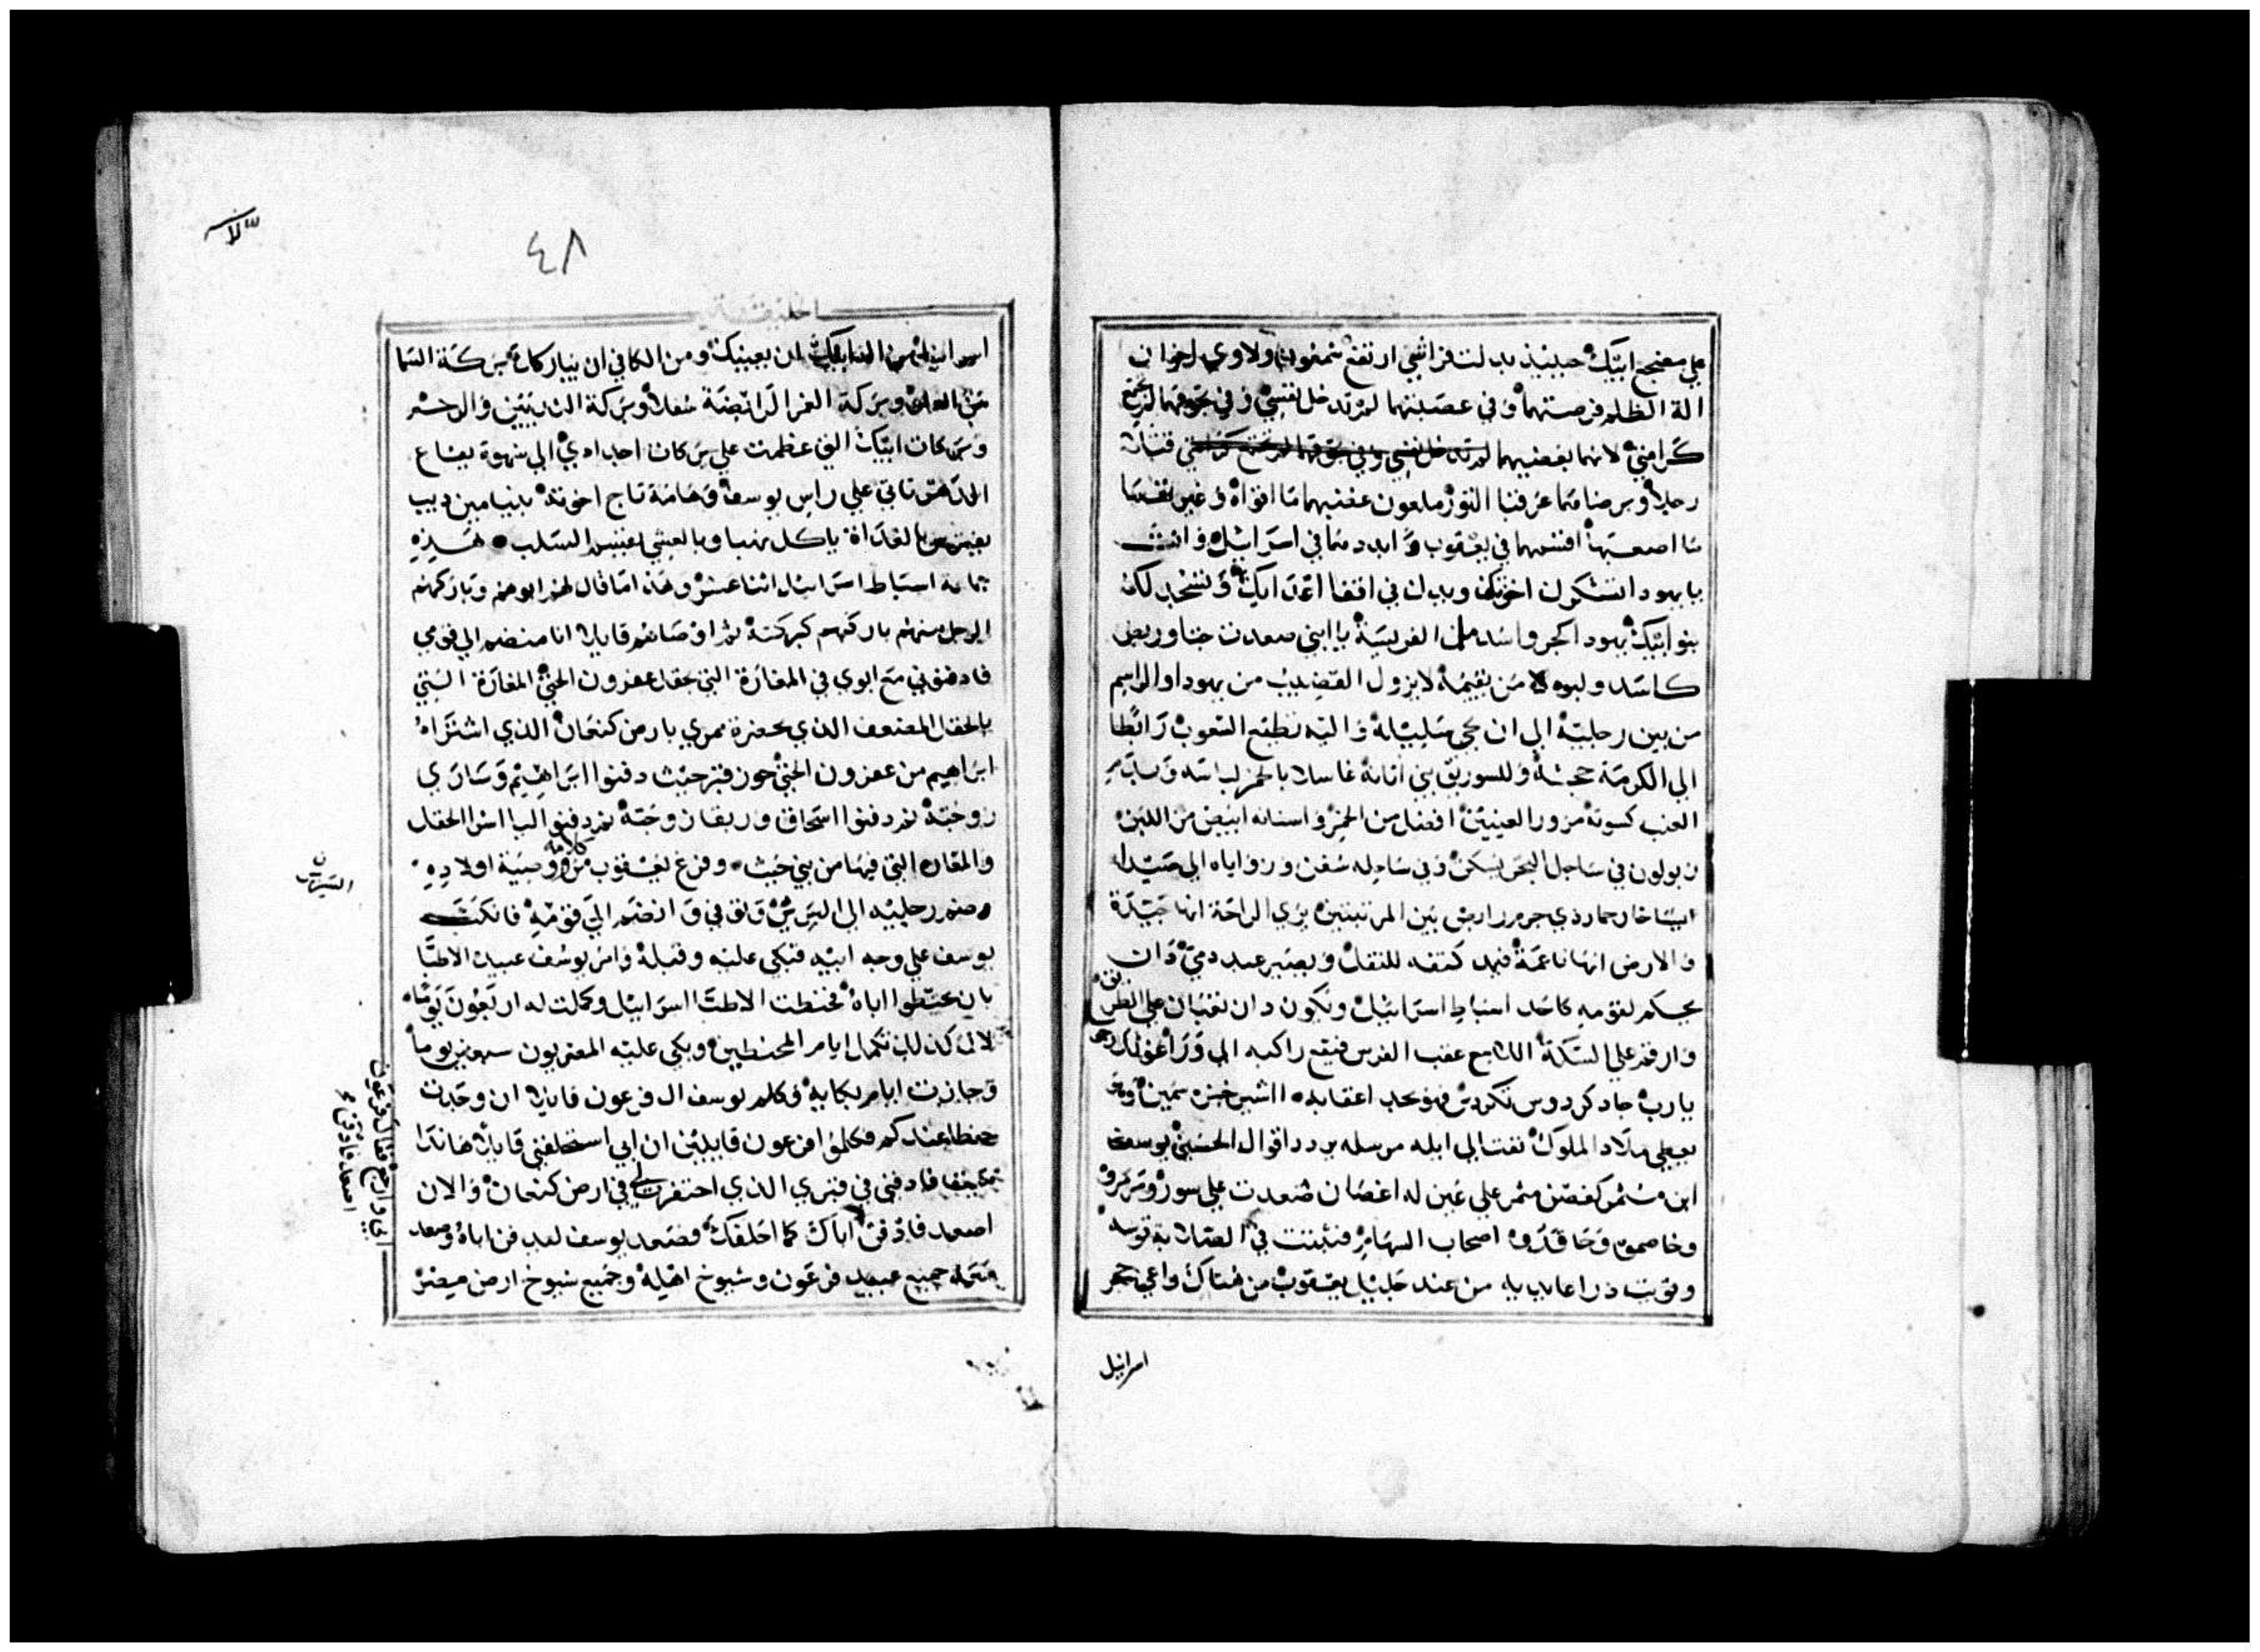 علي مضجع ابيك حينيذ بدلت فراشي ارتفع شمعون ولاوي اخوان
الة الظلم فرصتهما وفي عصبتهما لم تدخل نفسي وفي جوقهما لم تجتمع
كرامتي لانهما بغضبهما قتلا
رجلا وبرضاهما عرقبا الثور ملعون غضبهما ما اقواه وغيرتهما
ما اصعبها اقسمهما في يعقوب و ابددهما في اسرائيل وانت
يا يهودا تشكرك اخوتك ويدك في اقفا اعدايك وتسجد لك
بنو ابيك يهودا كجرو اسد من الفريسة يا ابني صعدت جثا وربض
كاسد ولبوه من يقيمه لا يزول القضيب من يهودا والراسم
من بين رجليه الي ان يجي شيليله واليه تطيع الشعوب رابطا
الي الكرمة جحشه وللسوريق بني اتانه غاسلا بالخمر لباسه وبدم
العنب كسوته مزور العينين افضل من الخمر واسنانه ابيض من اللبن
زبولون في ساحل البحر يسكن وفي ساحله سفن وزواياه الي صيدا
ايساخار حمار ذي جرم رابض بين المرتبتين يري الراحة انها جيدة
والارض انها ناعمة فيمد كتفه للثقل ويصير عبد دمي دان
يحكم لقومه كاحد اسباط اسرائيل ويكون دان ثعبان علي الطريق
وارقم علي السكة اللاسع عقب الفرس فيقع راكبه الي ورا غوثك رجوت
يا رب جاد كردوس تكردس فهو يحد اعقابه اشير خبزه سمين وهو
يعطي ملاد الملوك نفتالي ايله مرسله يردد اقوال الحسن يوسف
ابن مثمر كغصن مثمر علي عين له اغصان صعدت علي سور ومرمروه
وخاصموه وحاقدوه اصحاب السهام فثبتت في الصلابة قوسه
وقويت ذراعا يديه من عند جليل يعقوب من هناك راعي حجر
اسرائيل
٤٨
الخليقة
اسرائيل من اله ابيك ان يعينك ومن الكافي ان يباركك بركة السما
من العلا وبركة الغمر الرابضة سفلا وبركة الثديين والرحم
وبركات ابيك التي عظمت علي بركات اجدادي الي شهوة يفاع
الدهر تاتي علي راس يوسف وهامة تاج اخوته بنيامين ديب
يفترس بالغداة ياكل نهبا وبالعشي يقسم السلب هذه
جماعة اسباط اسرائيل اثنا عشر وهذا ما قال لهم ابوهم وباركهم
الرجل منهم باركهم كبركته ثم اوصاهم قايلا انا منضم الي قومي
فادفنوني مع ابوي في المغارة التي بحقل عفرون الحثي المغارة التي
بالحقل المضعف الذي بحضرة ممري بارض كنعان الذي اشتراه
ابراهيم من عفرون الحثي حوز قبر حيث دفنوا ابراهيم وساري
زوجته ثم دفنوا اسحاق وربقا زوجته ثم دفنوا ليا اشرا الحقل
والمغاره التي فيها من بني حيث وفرغ يعقوب من كلامه وصية اولاده
وضم رجليه الي السرير وتوفي وانضم الي قومه فانكب
يوسف علي وجه ابيه فبكي عليه وقبله وامر يوسف عبيده الاطبا
بان يحنطوا اباه فحنطت الاطبا اسرائيل وكملت له اربعون يوما
لان كذلك تكمل ايام المحنطين وبكي عليه المصريون سبعين يوما
وجازت ايام بكايه وكلم يوسف ال فرعون قايلا ان وجدت
حظا عندكم فكلموا فرعون قايلين ان ابي استحلفني قايلا هاندا
متوفيا فادفني في قبري الذي احتفرت لي في ارض كنعان والان
اصعد فادفن ابي وارجع فقال فرعون
اصعد فادفن
اصعد فادفن اباك كما احلفك فصعد يوسف لدفن اباه وصعد
معه جميع عبيد فرعون وشيوخ اهله وجميع شيوخ ارض مصر
السرير